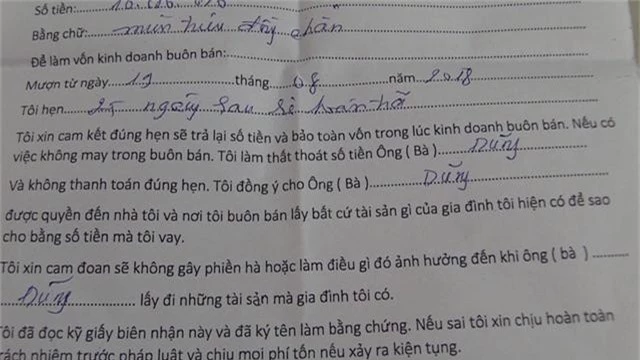 Số tiền:
Bằng chữ: mười triệu đồng chẵn
Để làm vốn kinh doanh buôn bán:
Mượn từ ngày 19 tháng 08 năm 2018
Tôi hẹn 25 ngày sau sẽ hoàn trả
Tôi xin cam kết đúng hẹn sẽ trả lại số tiền và bảo toàn vốn trong lúc kinh doanh buôn bán. Nếu có
việc không may trong buôn bán. Tôi làm thất thoát số tiền Ông ( Bà ) Dũng
Và không thanh toán đúng hẹn. Tôi đồng ý cho Ông ( Bà ) Dũng
được quyền đến nhà tôi và nơi tôi buôn bán lấy bất cứ tài sản gì của gia đình tôi hiện có để sao
cho bằng số tiền mà tôi vay.
Tôi xin cam đoan sẽ không gây phiền hà hoặc làm điều gì đó ảnh hưởng đến khi ông ( bà )
Dũng lấy đi những tài sản mà gia đình tôi có.
Tôi đã đọc kỹ giấy biên nhận này và đã ký tên làm bằng chứng. Nếu sai tôi xin chịu hoàn toàn
trách nhiệm trước pháp luật và chịu mọi phí tốn nếu xảy ra kiện tụng.